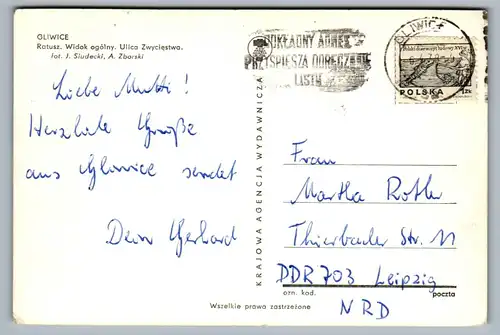 GLIWICE
Ratusz. Widok ogólny. Ulica Zwycięstwa.
fot. J. Siudecki, A. Zborski
Liebe Mutti!
Herzliche Grüße
aus Gliwice sendet
Dein Gerhard
KRAJOWA AGENCJA WYDAWNICZA
DOKŁADNY ADRES
PRZYSPIESZA DORĘCZENIE
LISTU
GLIWICE
POLSKA 1ZŁ
Frau
Martha Roth
Thierbacher Str. 11
DDR 703 Leipzig
ozn. kod. poczta
NRD
Wszelkie prawa zastrzeżone